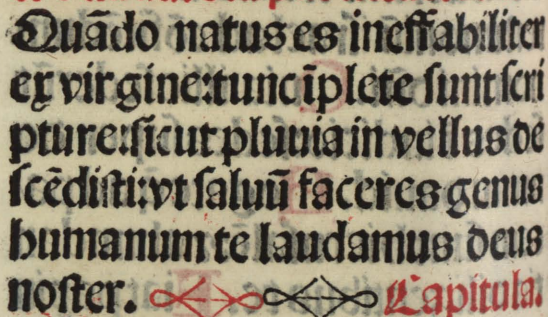 Quādo natus es ineffabiliter
ex virgine:tunc īplete sunt scri
pture:sicut pluuia in vellus de
scēdisti:vt saluū faceres genus
humanum te laudamus deus
noster. Capitula.